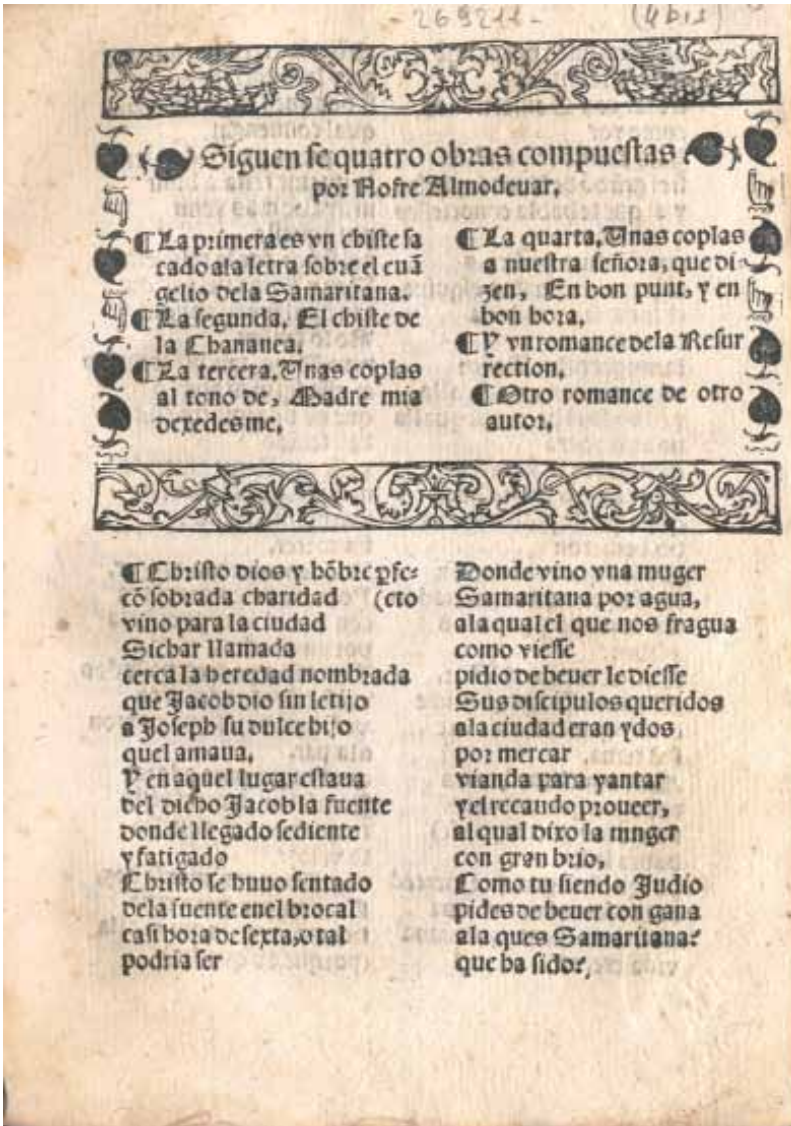 - 269211 - (4 bis)
Siguen se quatro obras compuestas
por Nofre Almodeuar.
¶ La primera es vn chiste sa
cado ala letra sobre el euã
gelio dela Samaritana.
¶ La segunda, El chiste de
la Chananea.
¶ La tercera. Unas coplas
al tono de, Madre mia
dexedesme.
¶ La quarta. Unas coplas
a nuestra señora, que di-
zen, En bon punt, y en
bon hora.
¶ Y vn romance dela Resur
rection.
¶ Otro romance de otro
autor.
¶ Christo dios y hõbre ꝑfe-
cõ sobrada charidad (cto
vino para la ciudad
Sichar llamada
cerca la heredad nombrada
que Jacob dio sin letijo
a Joseph su dulce hijo
quel amaua,
Y en aquel lugar estaua
del dicho Jacob la fuente
donde llegado sediente
y fatigado
Christo se huuo sentado
dela fuente enel brocal
casi hora de sexta, o tal
podria ser
Donde vino vna muger
Samaritana por agua,
ala qual el que nos fragua
como viesse
pidio de beuer le diesse
Sus discipulos queridos
ala ciudad eran ydos
por mercar
vianda para yantar
y el recaudo proueer,
al qual dixo la mnger
con gran brio,
Como tu siendo Judio
pides de beuer con gana
ala ques Samaritana?
que ha sido?